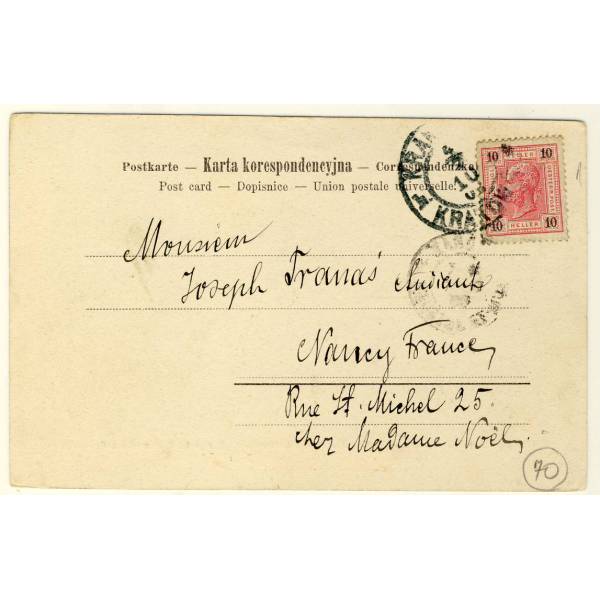 Postkarte — Karta korespondencyjna — Correspondenzka
Post card — Dopisnice — Union postale universelle.
KRAKÓW
10 10
HELLER HELLER
10 10
Monsieur
Joseph
Nancy France
Rue St. Michel 25.
chez Madame Noël,
70